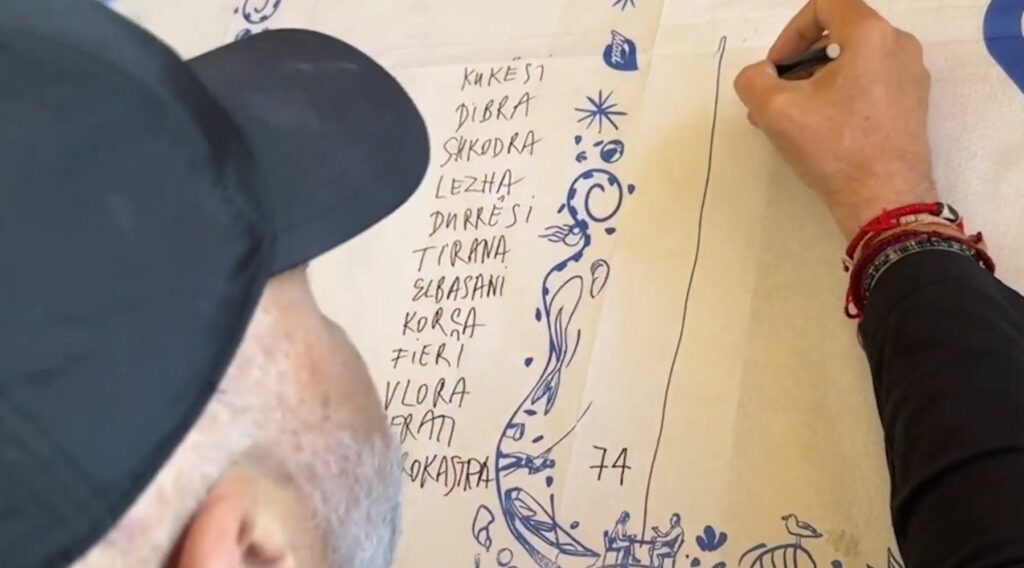 KUKËSI
DIBRA
SHKODRA
LEZHA
DURRËSI
TIRANA
ELBASANI
KORÇA
FIERI
VLORA
ERATI
ROKASTRA
74